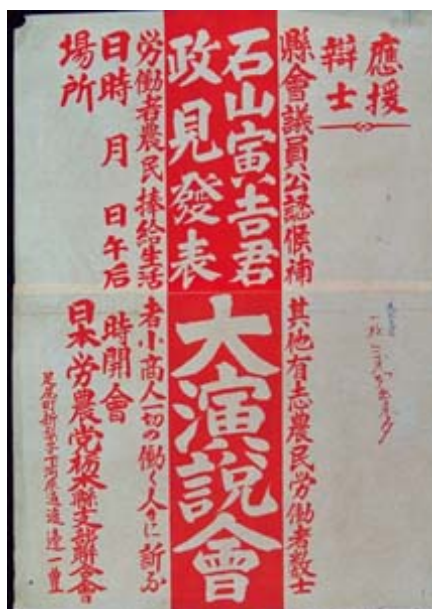 應援
辯士
縣會議員公認候補
其他有志農民労働者数士
石山寅吉君
政見發表
大演説會
労働者農民捧給生活者小商人一切の働く人々に訴ふ
日時 月 日午后 時開會
場所
日本労農党栃木縣支部聯合會
足尾町